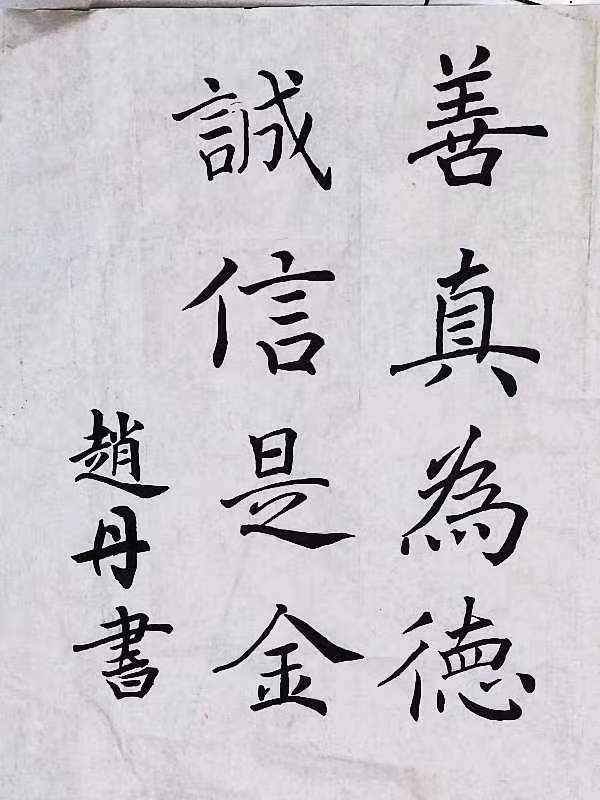 善真為德
誠信是金
趙丹書